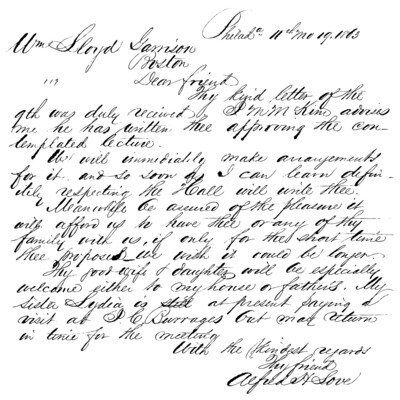 Philada 11th Mo 19. 1863
Wm Lloyd Garrison
Boston
Dear friend
Thy kind letter of the
9th was duly received, J M M Kim advises
me he has written thee approving the con-
templated lecture.
We will immediately make arrangements
for it. and so soon as I can learn defin-
itely respecting the Hall will write thee.
Meanwhile be assured of the pleasure it
will afford us to have thee or any of thy
family with us, if only for the short time
thee proposed we wish it could be longer.
Thy good wife & daughter will be especially
welcome either to my house or fathers. My
Sister Lydia is still at present paying a
visit at J. C. Burrages but may return
in time for the meeting
With the kindest regards
Thy friend
Alfred H Love